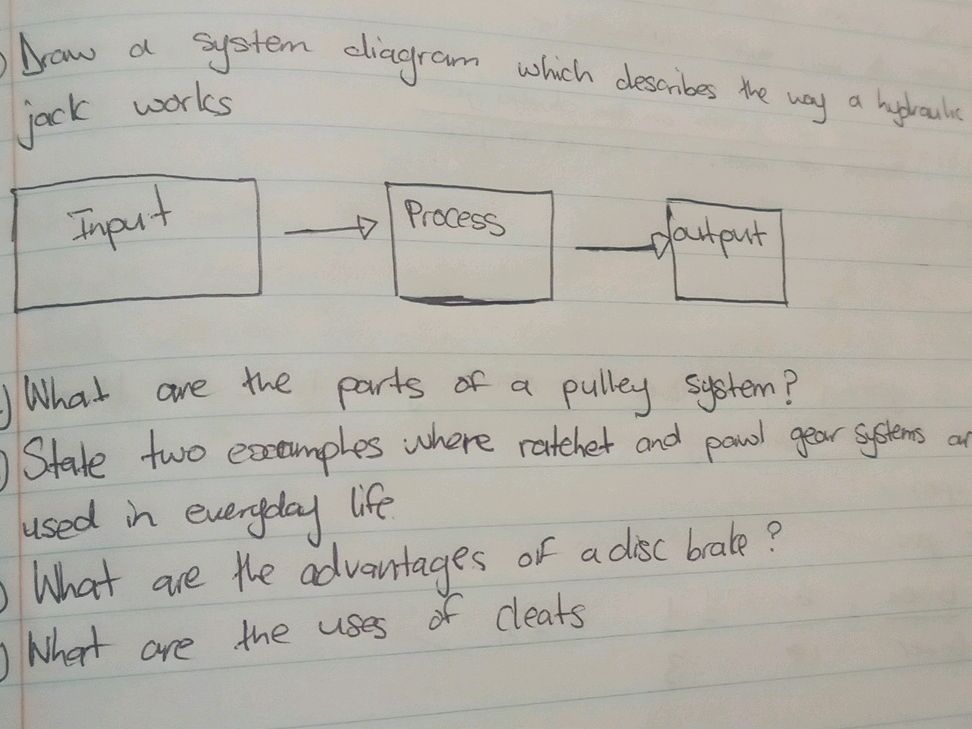 ) Draw a system diagram which describes the way a hydraulic
jack works
Input Process output
) What are the parts of a pulley system?
) State two examples where ratchet and pawl gear systems ar
used in everyday life
) What are the advantages of a disc brake?
) What are the uses of cleats